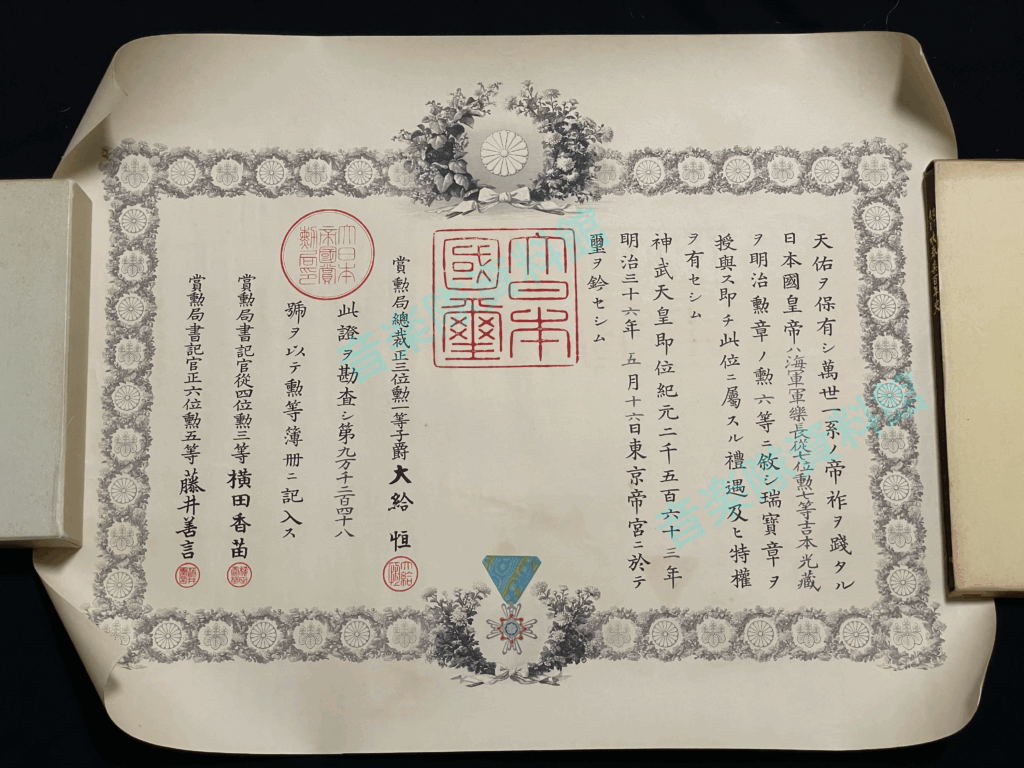 天佑ヲ保有シ萬世一系ノ帝祚ヲ踐タル
日本國皇帝ハ海軍軍樂長從七位勲七等吉本光藏
ヲ明治勲章ノ勲六等ニ敘シ瑞寶章ヲ
授與ス即チ此位ニ屬スル禮遇及ヒ特權
ヲ有セシム
神武天皇即位紀元二千五百六十三年
明治三十六年五月十六日東京帝宮ニ於テ
璽ヲ鈐セシム
大日本
國璽
賞勲局總裁正三位勲一等子爵大給恒
大日本
帝國賞
勲局印
此證ヲ勘査シ第九万千二百四十八
號ヲ以テ勲等簿册ニ記入ス
賞勲局書記官從四位勲三等橫田香苗
賞勲局書記官正六位勲五等藤井善言